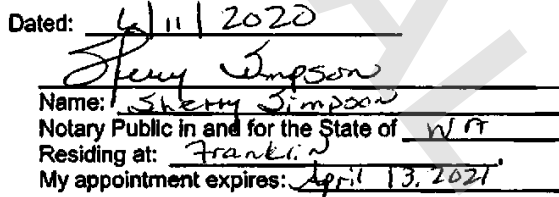 Dated: 6/11/2020
Sherry Simpson
Name: Sherry Simpson
Notary Public in and for the State of WA
Residing at: Franklin.
My appointment expires: April 13, 2021